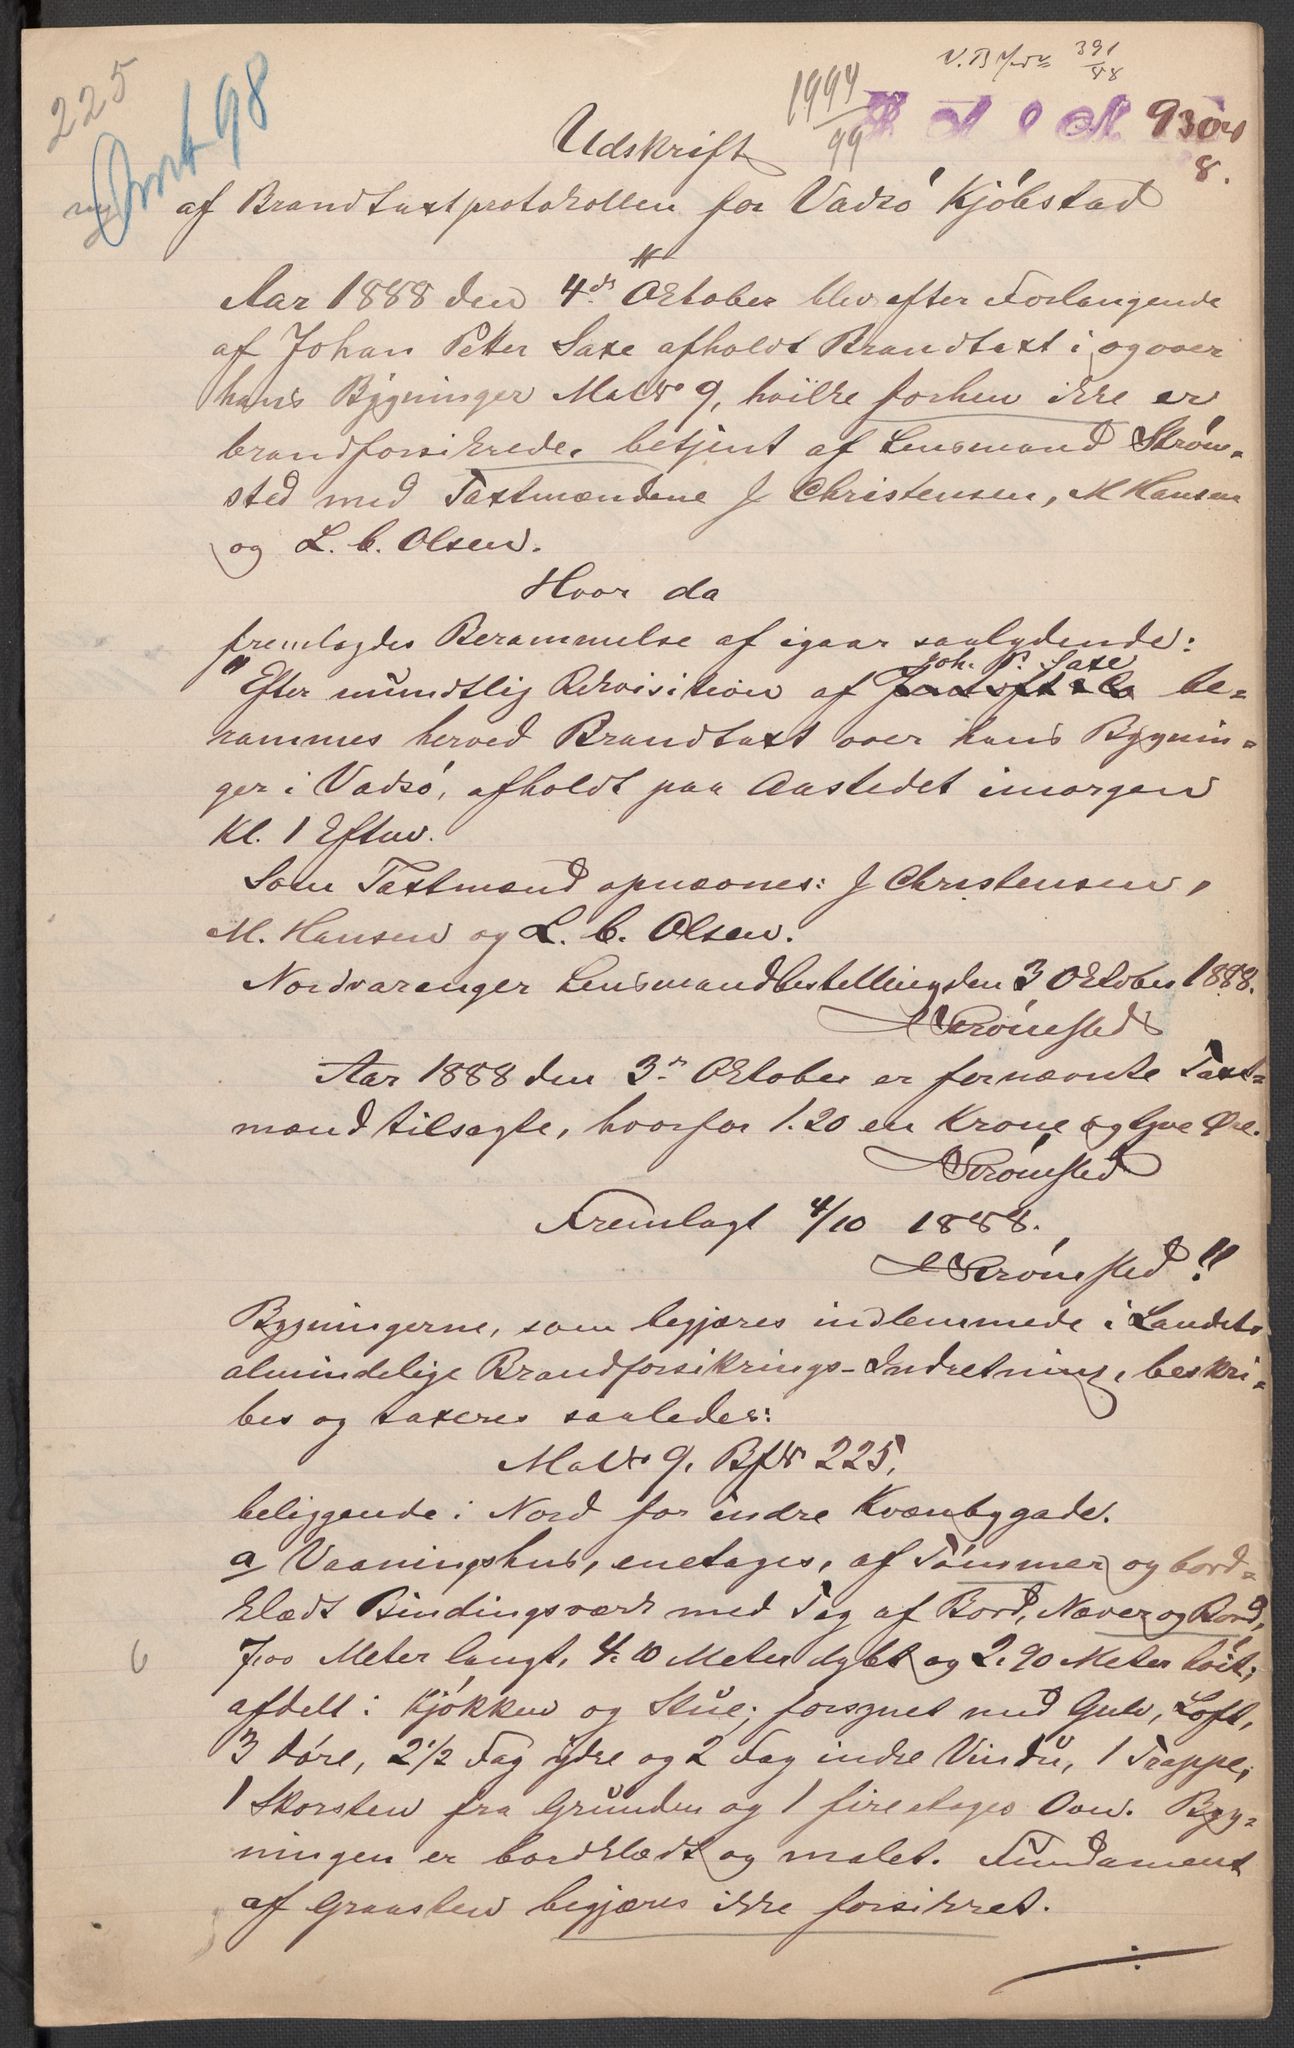 225
391
88
1994
99
930
8.
Omt 98
ny
Udskrift
af Brandtaxtprotokollen for Vadsö Kjöbstad
Aar 1888 den 4de Oktober blev efter Forlangende
af Johan Petter Saxe afholdt Brandtaxt i og over
hans Bygninger MatN 9, hvilke forhen ikke er
brandforsikrede, betjent af Lensmand Strøm-
sted med Taxtmændene J Christensen, M Hansen
og L. C. Olsen.
Hvor da
fremlagdes Berammelse af igaar saalydende:
Joh. P. Saxe
"Efter mundtlig Rekvisition af be-
rammes herved Brandtaxt over hans Bygnin-
ger i Vadsö, afholdt paa Aastedet imorgen
Kl. 1 Efterm.
Som Taxtmænd opnævnes: J Christensen,
M. Hansen og L. C. Olsen.
Nordvaranger Lensmandbestilling den 3 Oktober 1888.
Strömsted
Aar 1888 den 3die Oktober er fornævnte Taxt-
mænd tilsagte, hvorfor 1.20 en Krone og tyve Øre.
Strömsted
Fremlagt 4/10 1888.
Strömsted"
Bygningerne, som begjæres indlemmede i Landets
almindelige Brandforsikrings-Indretning, beskri-
bes og taxeres saaledes:
MatN 9. BfN 225,
beliggende i Nord for indre Kvænbygade.
a Vaaningshus, enetages, af Tömmer og bord-
klædt Bindingsværk med Tag af Bord, Næver og Bord,
7,00 Meter langt, 4.10 Meter dybt og 2.90 Meter höit;
afdelt i Kjökken og Stue; forsynet med Gulv, Loft,
3 Döre, 2 1/2 Fag ydre og 2 Fag indre Vindu, 1 Trappe,
6
1 Skorsten fra Grunden og 1 fire etages Ovn. Byg-
ningen er bordklædt og malet. Fundament
af Graasten begjæres ikke forsikret.